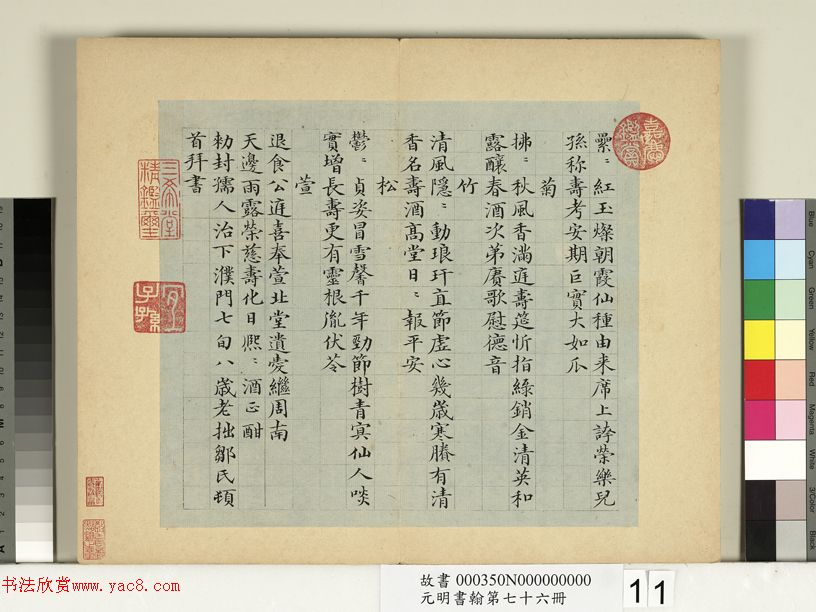 纍〻紅玉燦朝霞仙種由来席上誇榮樂兒
孫称壽考安期巨實大如瓜
菊
拂〻秋風香滿庭壽筵忻指綠銷金清英和
露釀春酒次第賡歌慰德音
竹
清風隱〻動琅玕直節虛心幾歲寒賸有清
香名壽酒高堂日〻報平安
松
鬱〻貞姿冒雪馨千年勁節樹青冥仙人啖
實增長壽更有靈根胤伏苓
萱
退食公庭喜奉萱北堂遺愛繼周南
天邊雨露榮慈壽化日熙〻酒正酣
勑封孺人治下濮門七旬八歲老拙鄒民頓
首拜書
三希堂
精鑑璽
宜
子孫
嘉慶
鑑賞
书法欣赏www.yac8.com
故書 000350N000000000
元明書翰第七十六冊
11
Blue
Cyan
Green
Yellow
Red
Magenta
White
3/Color
Black